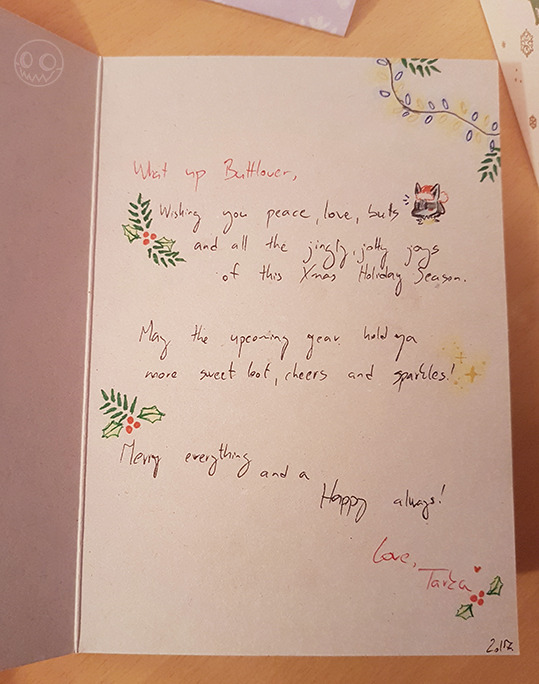 What up Buttlover,
Wishing you peace, love, buts
and all the jingly, jolly joys
of this Xmas Holiday Season.
May the upcoming year hold ya
more sweet loot, cheers and sparkles!
Merry everything
and a
Happy always!
Love,
2017